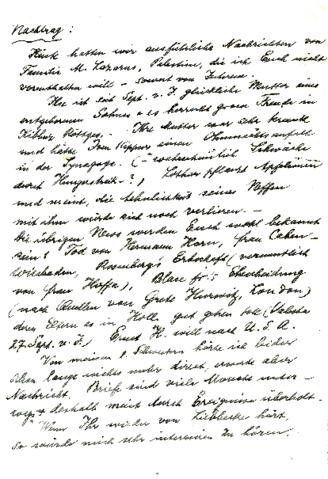 Nachtrag:
Heute hatten wir ausführliche Nachrichten von
Familie M. Lazarus, Palestine, die ich Euch nicht
vorenthalten will – soweit von Interesse.
ist seit Sept. v. J. glückliche Mutter eines
Sohnes & es herrscht grosse Freude in
Kibbuz . – Ihre Mutter war sehr krank
und hatte Frau einen Ohnmachtsanfall
in der Synagoge. (– wahrscheinlich Schwäche
durch Hungerstreik?), Lothar pflanzt Apfelsinen
und meint, die Ähnlichkeit seines Neffen
mit ihm würde sich noch verlieren. –
Die übrigen News werden Euch wohl bekannt
sein? Tod von Hermann Horn, Frau Cahen-
Wiesbaden, Rosenberg's (vermutlich
von Frau Haifa), Ehescheidung
(nach Quellen von Grete Hurwitz, London)
deren Eltern es in Holl. gut gehen soll (
27. Sept. v. J.) Ernst H. will nach U.S.A.
Von meinen Schwestern hörte ich leider
schon lange nichts mehr direkt, erwarte aber
Nachricht. Briefe sind viele Monate unter-
wegs & deshalb meist durch Ereignisse überholt.
Wenn Ihr wieder von hört,
so würde mich sehr interessieren zu hören.